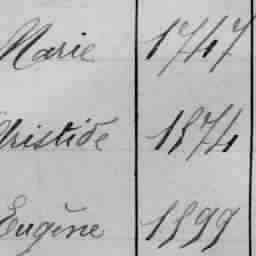 Marie 1747
Aristide 1874
Eugène 1899